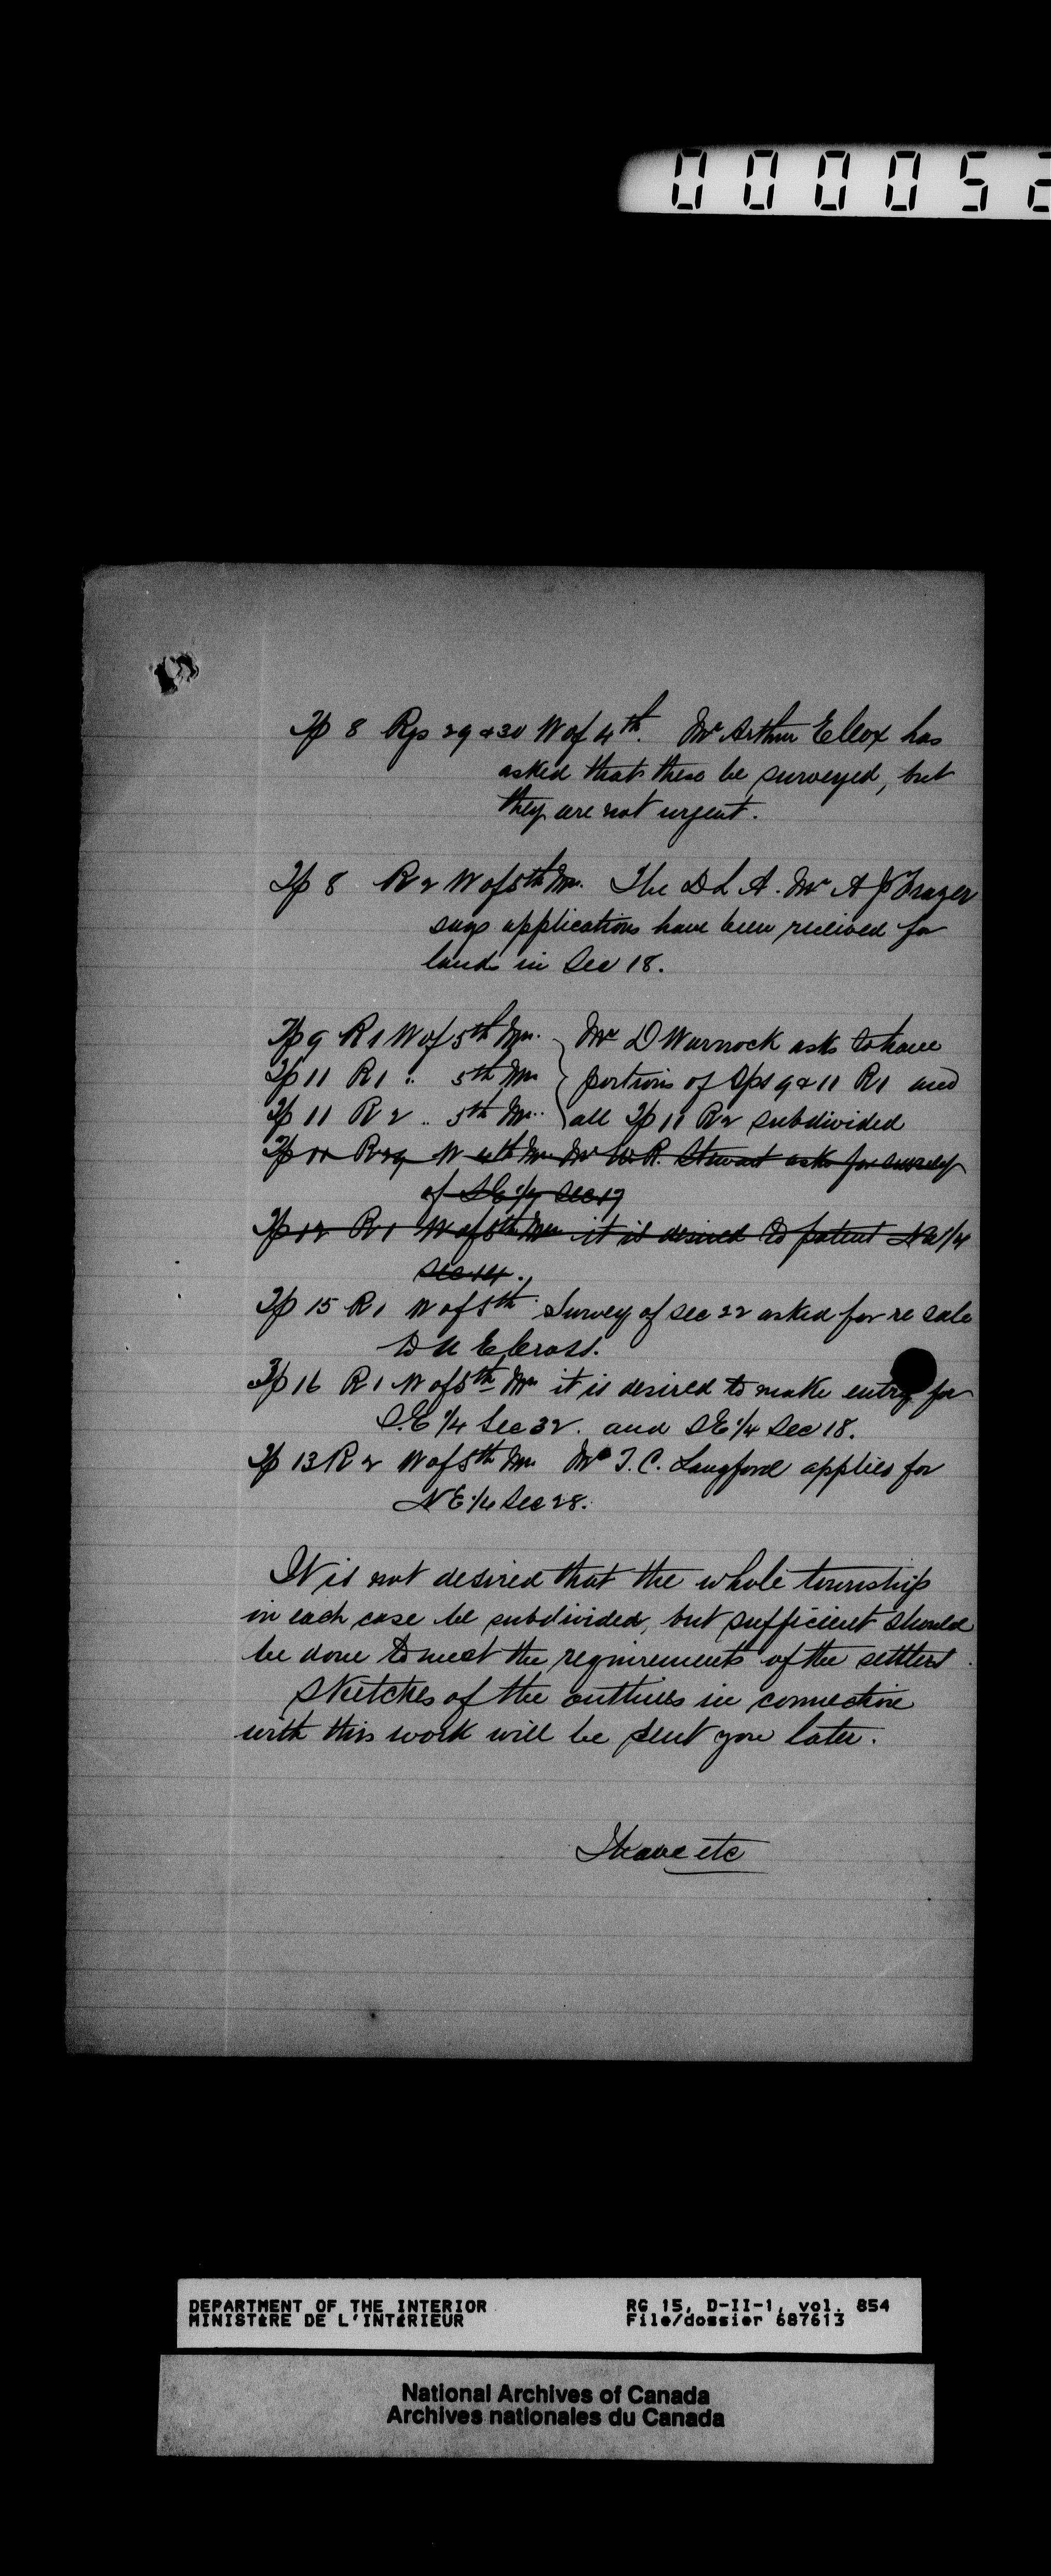 000052
Tp 8 Rgs 29 & 30 W of 4th. Mr Arthur E Cox has
asked that these be surveyed, but
they are not urgent.
Tp 8 R 2 W of 5th Mn. The D L A. Mr A J Frazer
says applications have been received for
lands in Sec 18.
Tp 9 R 1 W of 5th Mn. Mr D Warnock asks to have
Tp 11 R 1 " 5th Mn portions of Tps 9 & 11 R 1 and
Tp 11 R 2 " 5th Mn. all Tp 11 R 2 subdivided
Tp 11 R 29 W 4th Mn Mr W. R. Stewart asks for survey
of SE 1/4 Sec 17
Tp 12 R 1 W of 5th Mn it is desired to patent NW 1/4
Sec 14.
Tp 15 R 1 W of 5th. Survey of sec 22 asked for re sale
to E Cross.
Tp 16 R 1 W of 5th Mn it is desired to make entry for
S.E 1/4 Sec 32. and SE 1/4 Sec 18.
Tp 13 R 2 W of 5th Mn Mr T. C. Langford applies for
NE 1/4 Sec 28.
It is not desired that the whole township
in each case be subdivided, but sufficient should
be done to meet the requirements of the settlers.
Sketches of the outlines in connection
with this work will be sent you later.
I have etc
DEPARTMENT OF THE INTERIOR RG 15, D-II-1, vol. 854
MINISTÈRE DE L'INTÉRIEUR File/dossier 687613
National Archives of Canada
Archives nationales du Canada